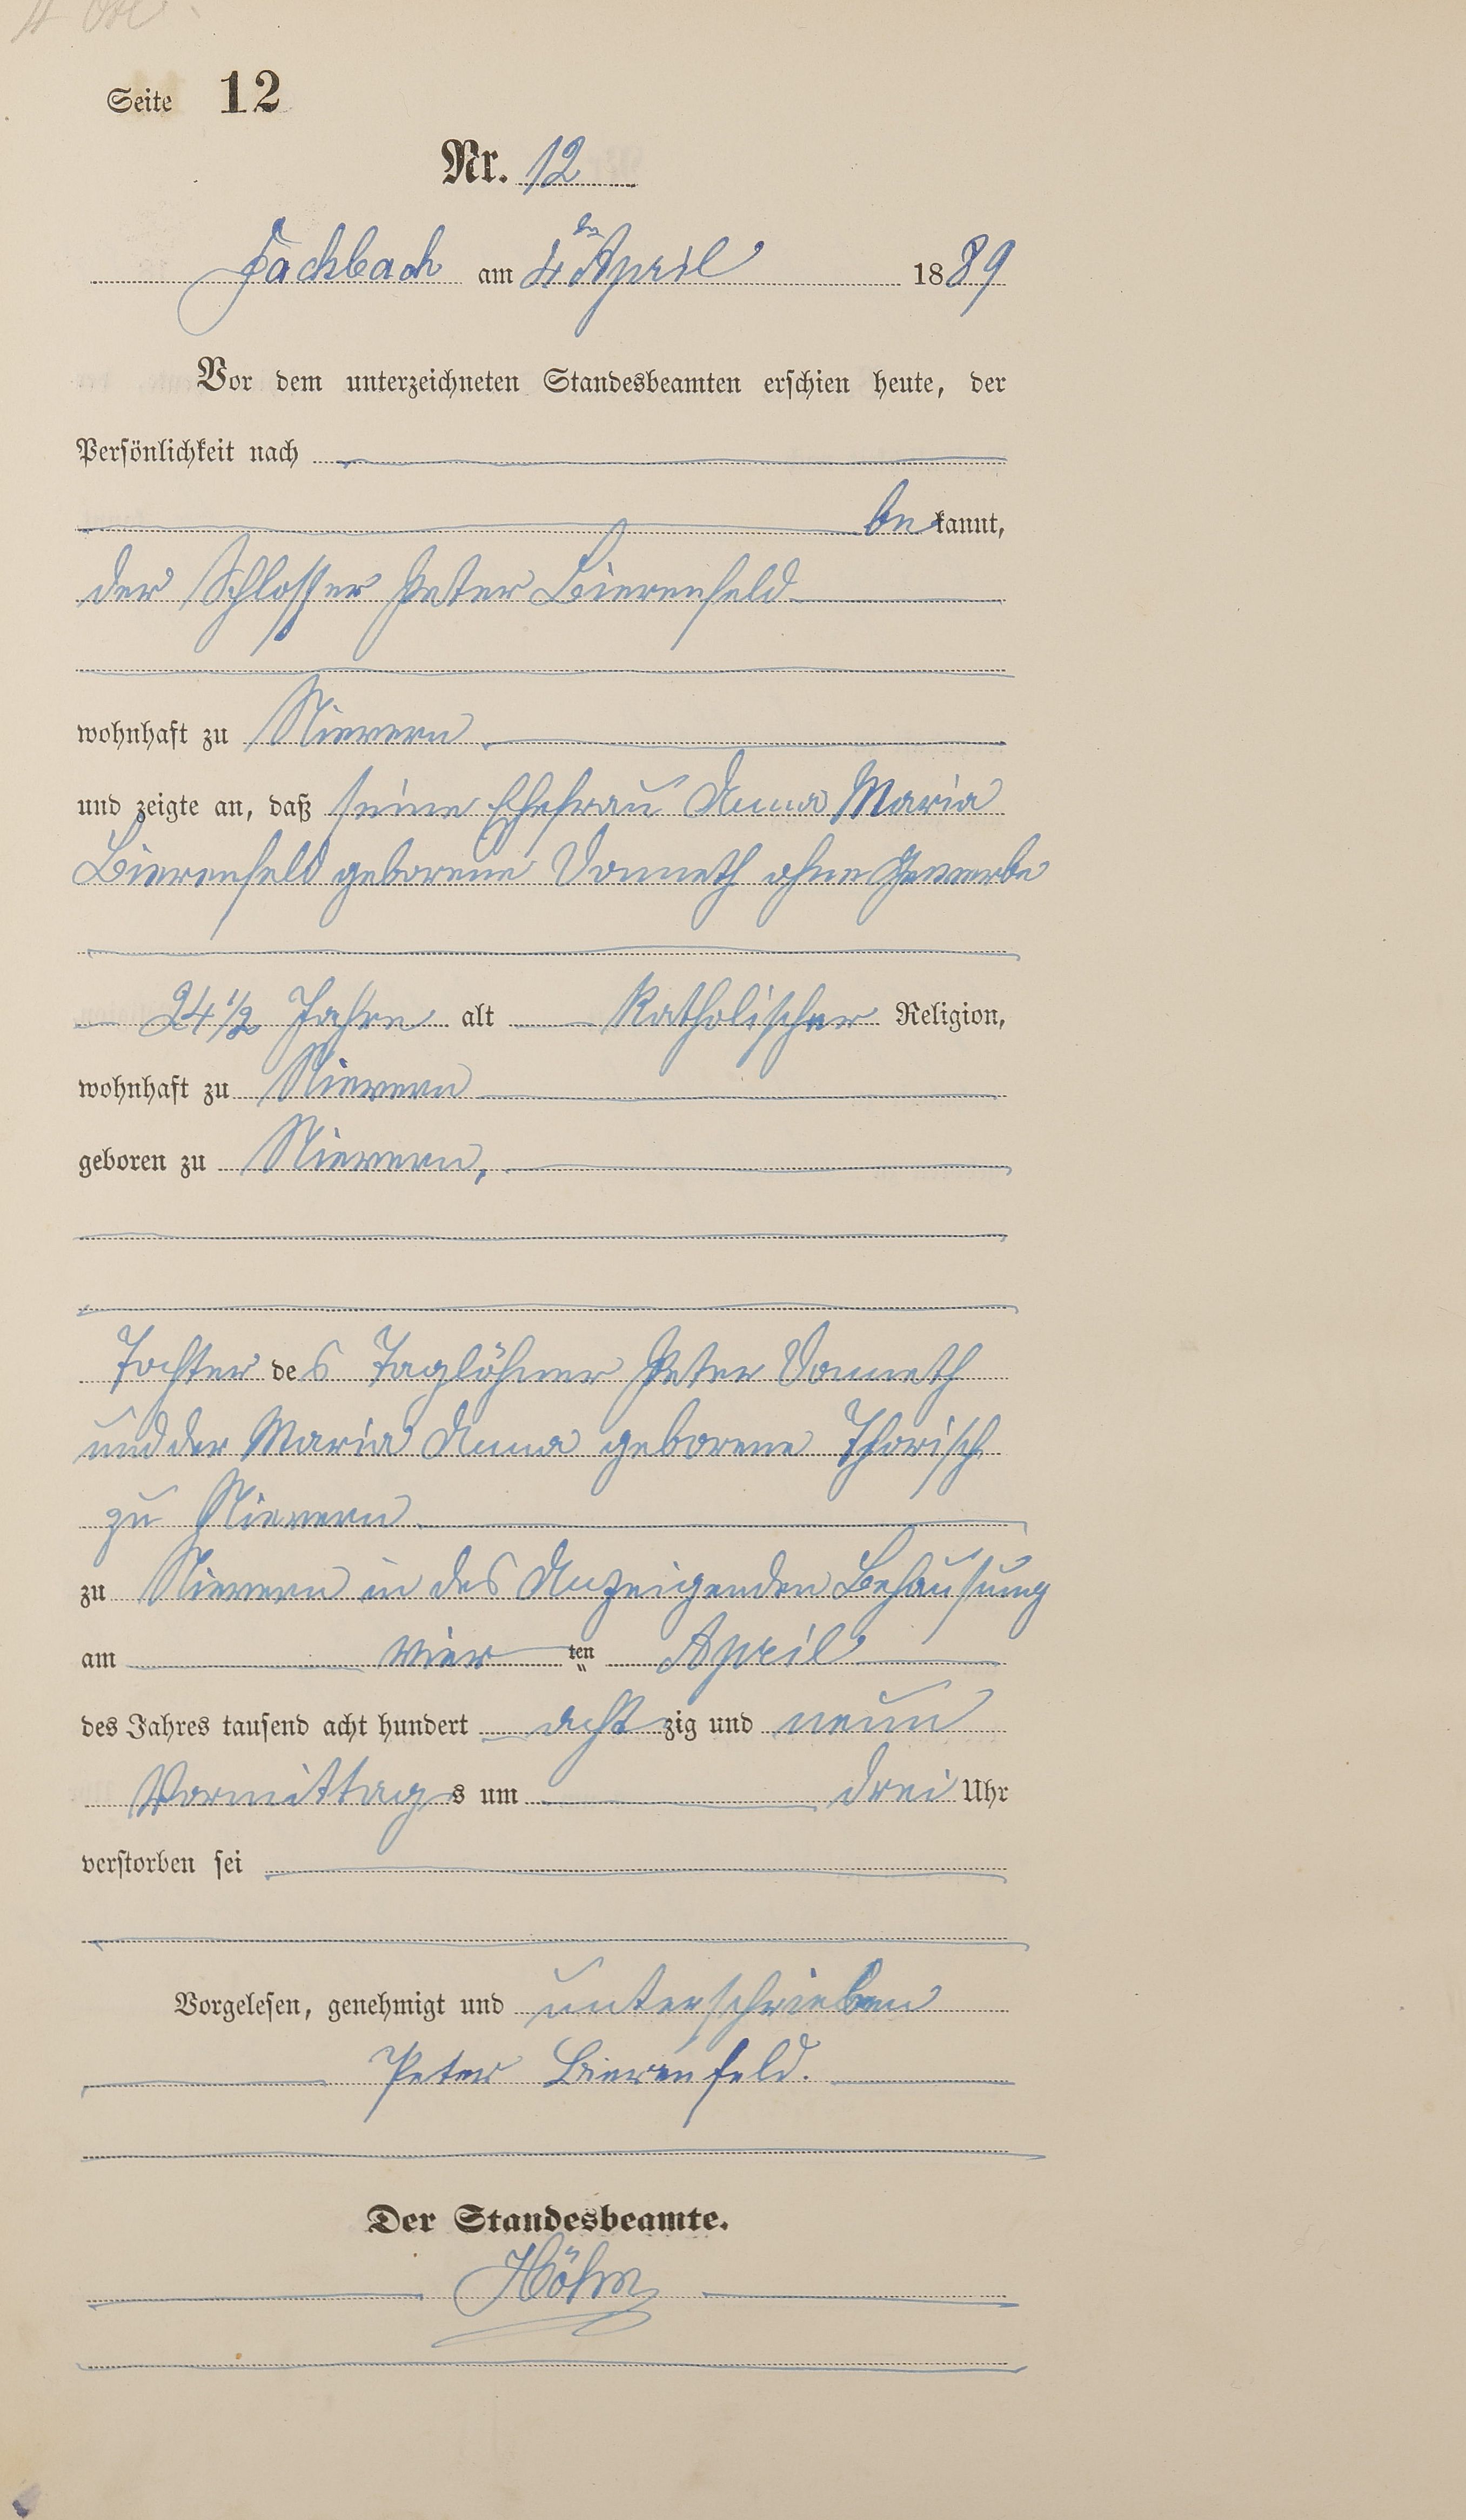 Seite 12
Nr. 12
Fachbach am 4ten April 1889
Vor dem unterzeichneten Standesbeamten erschien heute, der
Persönlichkeit nach
be kannt,
der Schlosser Peter Bierenfeld
wohnhaft zu Nievern
und zeigte an, daß seine Ehefrau Anna Maria
Bierenfeld geborene Vometh ohne Gewerbe
24 1/2 Jahre alt Katholischer Religion,
wohnhaft zu Nievern
geboren zu Nievern,
Tochter des Taglöhner Peter Vometh
und der Maria Anna geborene Thorisch
zu Nievern
zu Nievern in des Anzeigenden Behausung
am vier ten April
des Jahres tausend acht hundert acht zig und neun
Vormittags um drei Uhr
verstorben sei
Vorgelesen, genehmigt und unterschrieben
Peter Bierenfeld.
Der Standesbeamte.
Höhn